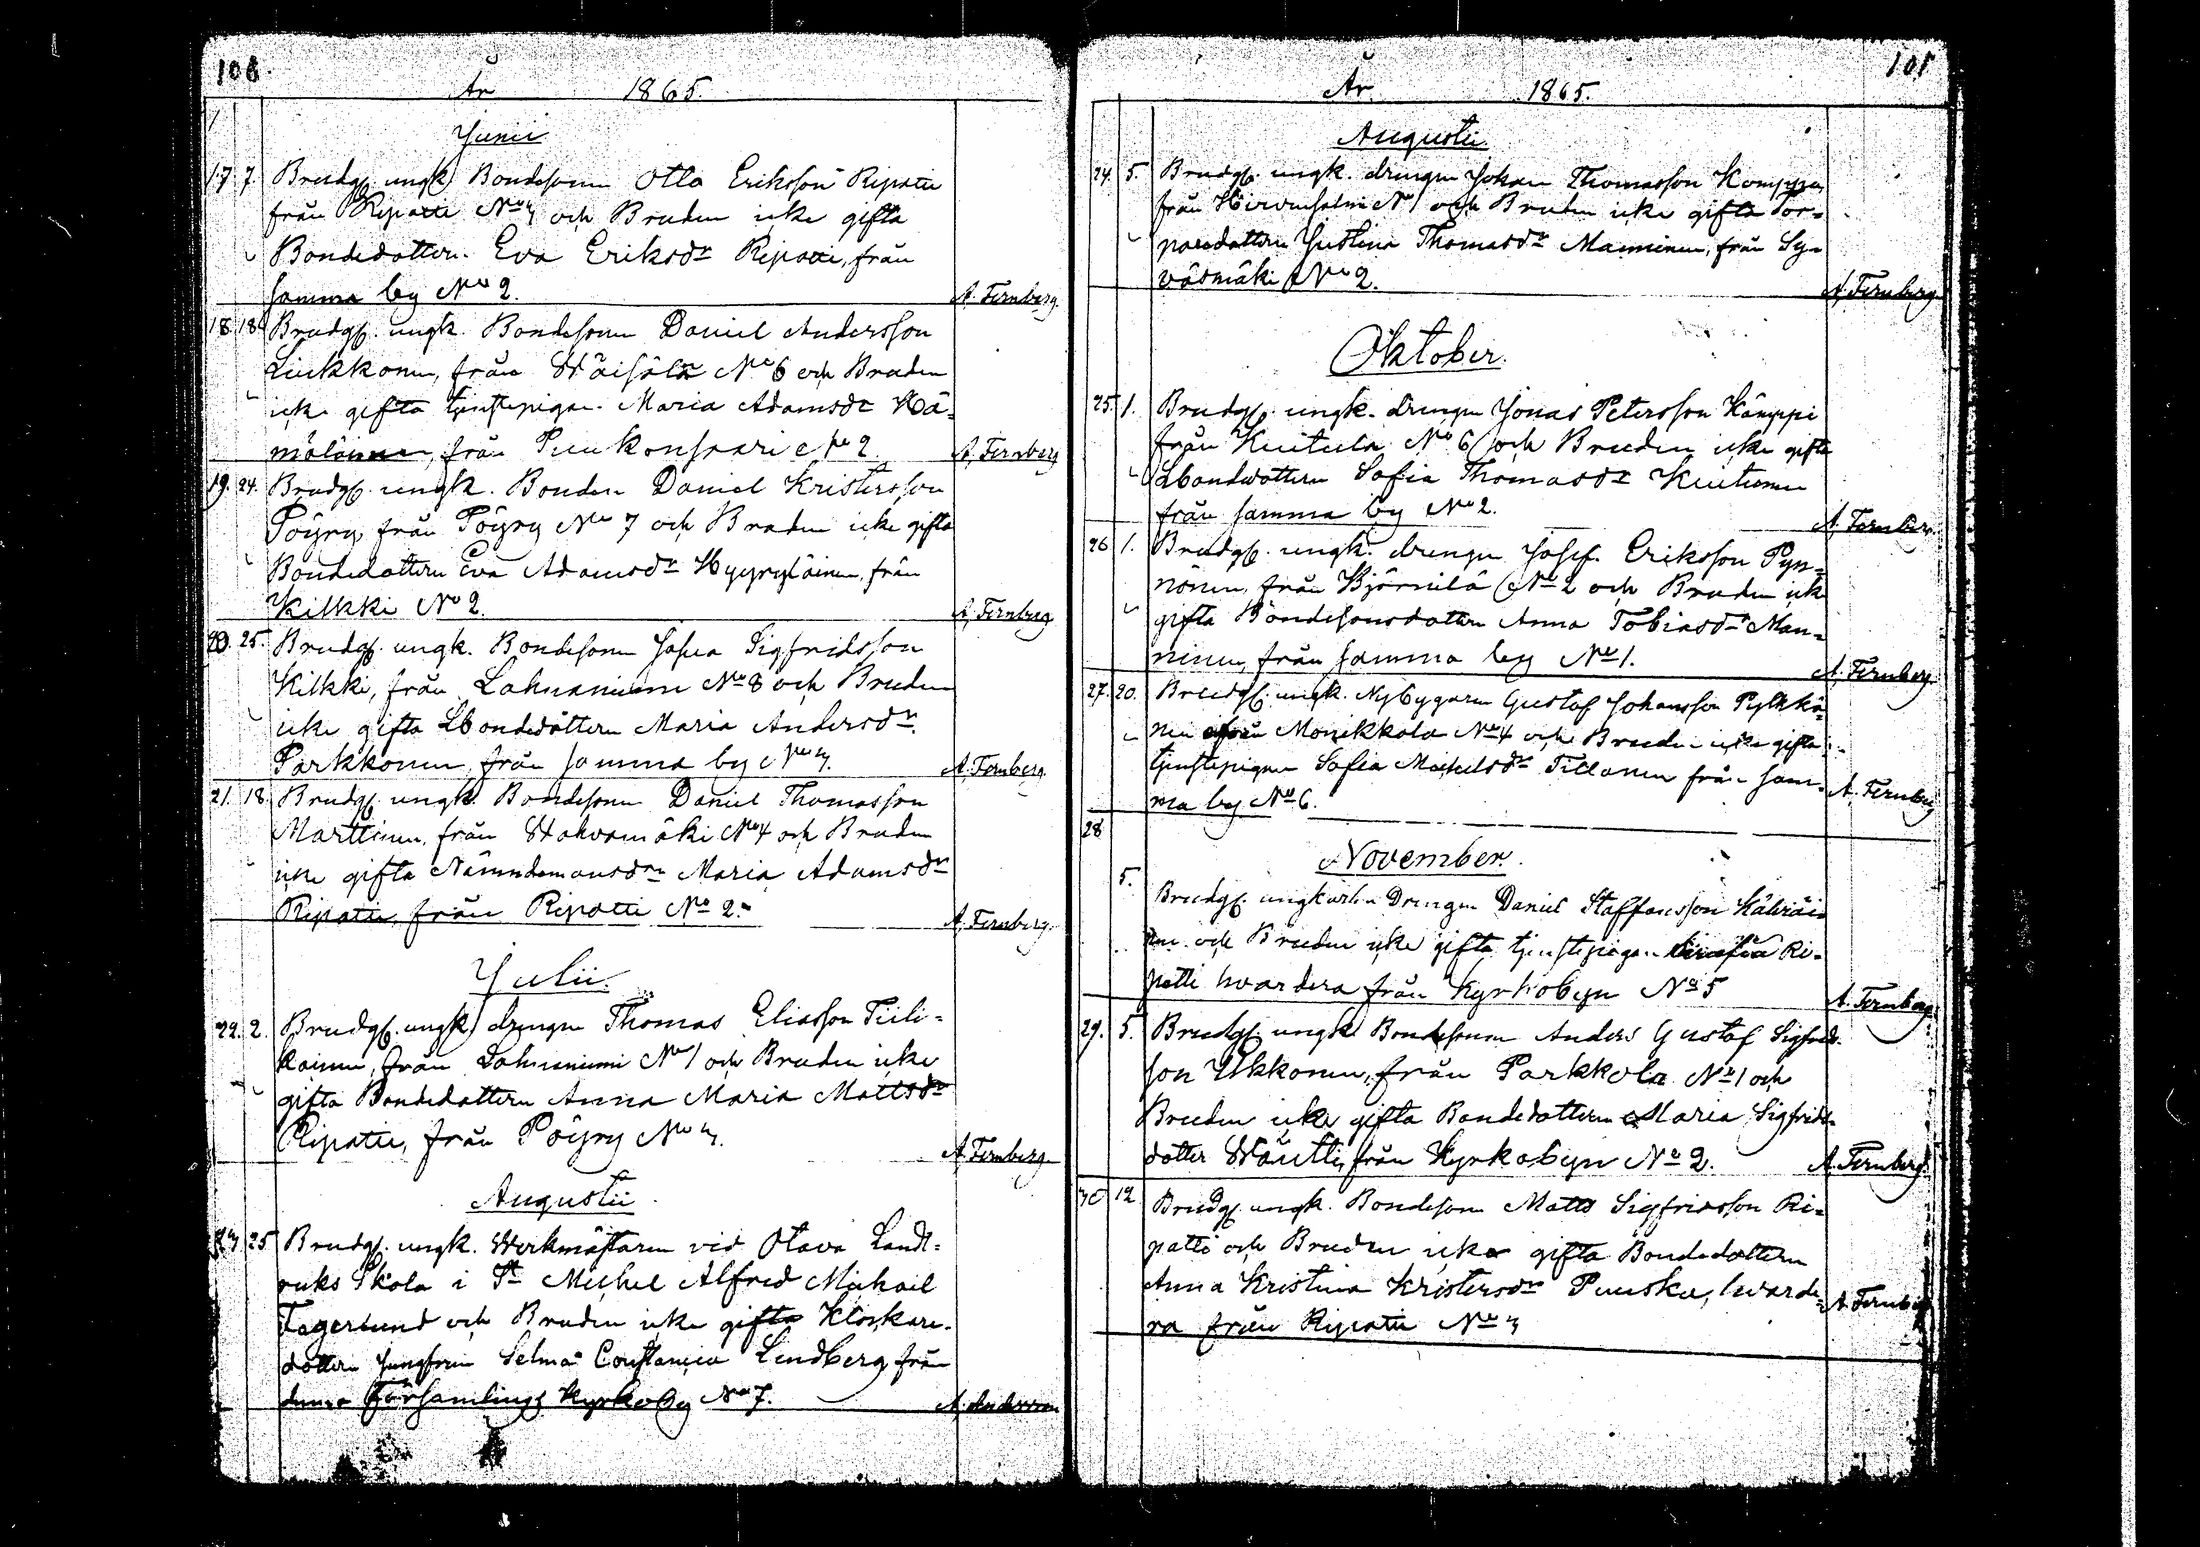 108.
År 1865.
Junii
17 7 Brudg. ungk. Bondesonen Otto Eriksson Ripatti
från Ripatti No 3 och Bruden icke gifta
Bondedottern Eva Eriksdr Ripatti, från
samma by No 2. A. Fernberg.
18 18 Brudg. ungk. Bondesonen Daniel Andersson
Liukkonen, från Wäisälä No 6 och Bruden
icke gifta tjenstepigan Maria Adamsdr Hä-
mäläinen, från Puukonsaari No 2. A. Fernberg
19. 24. Brudg. ungk. Bonden Daniel Kristersson
Pöyry, från Pöyry No 7 och Bruden icke gifta
Bondedottern Eva Adamsdr Hyyryläinen, från
Kilkki No 2. A. Fernberg
20. 25. Brudg. ungk. Bondesonen Josua Sigfridsson
Kilkki, från Lahnaniemi No 8 och Bruden
icke gifta Lbondedottern Maria Andersdr
Parkkonen, från samma by No 3. A. Fernberg.
21. 18. Brudg. ungk. Bondesonen Daniel Thomasson
Marttinen, från Wahvamäki No 4 och Bruden
icke gifta Nämndemansdrn Maria Adamsdr
Ripatti, från Ripatti No 2. A. Fernberg.
Julii.
22. 2. Brudg. ungk. drengen Thomas Eliasson Tiili-
kainen, från Lahnaniemi No 1 och Bruden icke
gifta Bondedottern Anna Maria Mattsdr
Ripatti, från Pöyry No 3. A. Fernberg.
Augustii
23 25 Brudg. ungk. Werkmästaren vid Otava Landt-
ruks Skola i St Michel Alfred Mickael
Fagerlund och Bruden icke gifta Klockare-
dottern Jungfrun Selma Constancia Lindberg från
denna Församlings Kyrkoby No 7. A. Andersson
101
År 1865.
Augustii.
24. 5. Brudg. ungk. drengen Johan Thomasson Komppa,
från No 1 och Bruden icke gifta Tor-
paredottern Justina Thomasdr Manninen, från Sy-
väsmäki No 2. A. Fernberg
Oktober.
25. 1. Brudg. ungk. drengen Jonas Petersson Kämppi
från Kuitula No 6 och Bruden icke gifta
Lbondedottern Sofia Thomasdr Kuitunen
från samma by No 2. A. Fernberg.
26 1. Brudg. ungk. drengen Josef Eriksson Pyn-
nönen, från Björnilä No 2 och Bruden icke
gifta Bondesonsdottern Anna Tobiasdr Man-
ninen, från samma by No 1. A. Fernberg.
27. 20. Brudg. ungk. Nybyggaren Gustaf Johansson Pylkkä-
nen från Monikkala No 4 och Bruden icke gifta
tjenstepigan Sofia Mickelsdr Tillanen från sam-
ma by No 6. A. Fernberg
28
November.
5. Brudg. ungkarlen Drengen Daniel Staffansson Kähräi
nen och Bruden icke gifta tjenstepigan Ri-
patti hvardera från Kyrkobyn No 5 A. Fernberg.
29. 5. Brudg. ungk. Bondesonen Anders Gustaf Sigfrids-
son Ukkonen, från Parkkola No 1 och
Bruden icke gifta Bondedottern Maria Sigfrids-
dotter Wäutti, från Kyrkobyn No 2. A. Fernberg.
30 12 Brudg. ungk. Bondesonen Matts Sigfridsson Ri-
patti och Bruden icke gifta Bondedottern
Anna Kristina Kristersdr Puuska, hvarde-
ra från Ripatti No 3 A. Fernberg